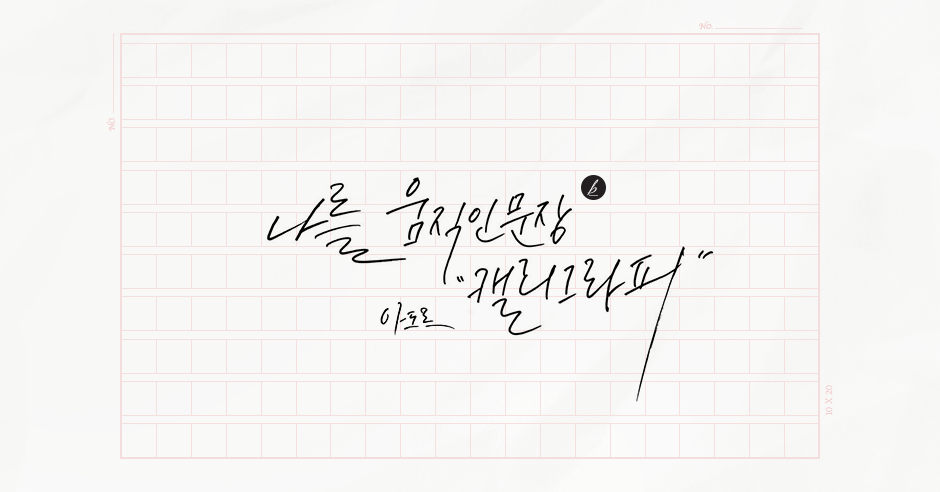 No
No
나를 움직인 문장
b
"캘리그라피"
아포로
10 X 20